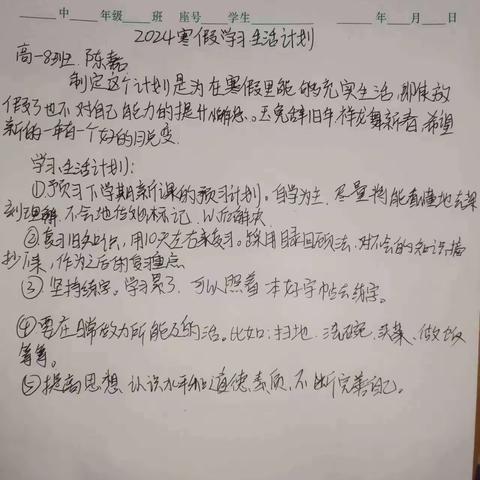 中 年级 班 座号 学生 年 月 日
2024寒假学习生活计划
高一8班 陈嘉
制定这个计划是为在寒假里能够充实生活,即使放
假了也不对自己能力的提升懈怠。玉兔辞旧年,祥龙舞新春,希望
新的一年有一个好的蜕变.
学习、生活计划:
①预习下学期新课的预习计划。自学为主,尽量将能看懂地去深
刻理解,不会地做标记,以后解决.
②复习旧知识,用10天左右来复习。采用目录回顾法,对不会的知识摘
抄下来,作为之后的复习重点
③坚持练字。学习累了,可以照着一本好字帖去练字。
④要在日常做力所能及的活。比如:扫地、洗碗、买菜、做饭
等等。
⑤提高思想、认识水平和道德素质,不断完善自己。